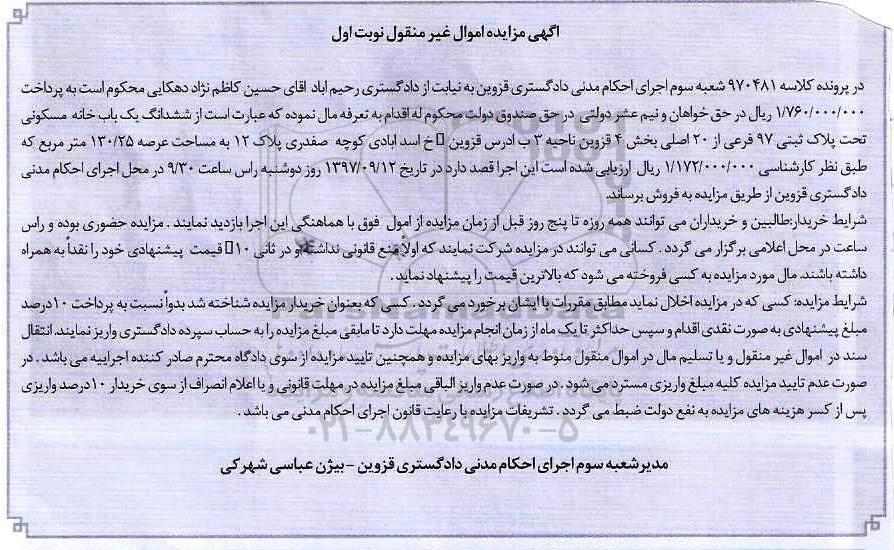 آگهی مزایده اموال غیر منقول نوبت اول
در پرونده کلاسه ۹۷۰۴۸۱ شعبه سوم اجرای احکام مدنی دادگستری قزوین به نیابت از دادگستری رحیم اباد اقای حسین کاظم نژاد دهکایی محکوم است به پرداخت
۱/۷۶۰/۰۰۰/۰۰۰ ریال در حق خواهان و نیم عشر دولتی در حق صندوق دولت محکوم له اقدام به تعرفه مال نموده که عبارت است از ششدانگ یک باب خانه مسکونی
تحت پلاک ثبتی ۹۷ فرعی از ۲۰ اصلی بخش ۴ قزوین ناحیه ۳ ب ادرس قزوین □ خ اسد ابادی کوچه صفدری پلاک ۱۲ به مساحت عرصه ۱۳۰/۲۵ متر مربع که
طبق نظر کارشناسی ۱/۱۷۲/۰۰۰/۰۰۰ ریال ارزیابی شده است این اجرا قصد دارد در تاریخ ۱۳۹۷/۰۹/۱۲ روز دوشنبه راس ساعت ۹/۳۰ در محل اجرای احکام مدنی
دادگستری قزوین از طریق مزایده به فروش برساند.
شرایط خریدار:طالبین و خریداران می توانند همه روزه تا پنج روز قبل از زمان مزایده از امول فوق با هماهنگی این اجرا بازدید نمایند . مزایده حضوری بوده و راس
ساعت در محل اعلامی برگزار می گردد . کسانی می توانند در مزایده شرکت نمایند که اولاً منع قانونی نداشته و در ثانی ۱۰□ قیمت پیشنهادی خود را نقداً به همراه
داشته باشند. مال مورد مزایده به کسی فروخته می شود که بالاترین قیمت را پیشنهاد نماید .
شرایط مزایده: کسی که در مزایده اخلال نماید مطابق مقررات با ایشان برخورد می گردد . کسی که بعنوان خریدار مزایده شناخته شد بدواً نسبت به پرداخت ۱۰درصد
مبلغ پیشنهادی به صورت نقدی اقدام و سپس حداکثر تا یک ماه از زمان انجام مزایده مهلت دارد تا مابقی مبلغ مزایده را به حساب سپرده دادگستری واریز نمایند. انتقال
سند در اموال غیر منقول و یا تسلیم مال در اموال منقول منوط به واریز بهای مزایده و همچنین تایید مزایده از سوی دادگاه محترم صادر کننده اجراییه می باشد . در
صورت عدم تایید مزایده کلیه مبلغ واریزی مسترد می شود . در صورت عدم واریز الباقی مبلغ مزایده در مهلت قانونی و یا اعلام انصراف از سوی خریدار ۱۰درصد واریزی
پس از کسر هزینه های مزایده به نفع دولت ضبط می گردد . تشریفات مزایده با رعایت قانون اجرای احکام مدنی می باشد .
۰۲۱-۸۸۳۴۹۶۷۰-۵
مدیر شعبه سوم اجرای احکام مدنی دادگستری قزوین - بیژن عباسی شهرکی